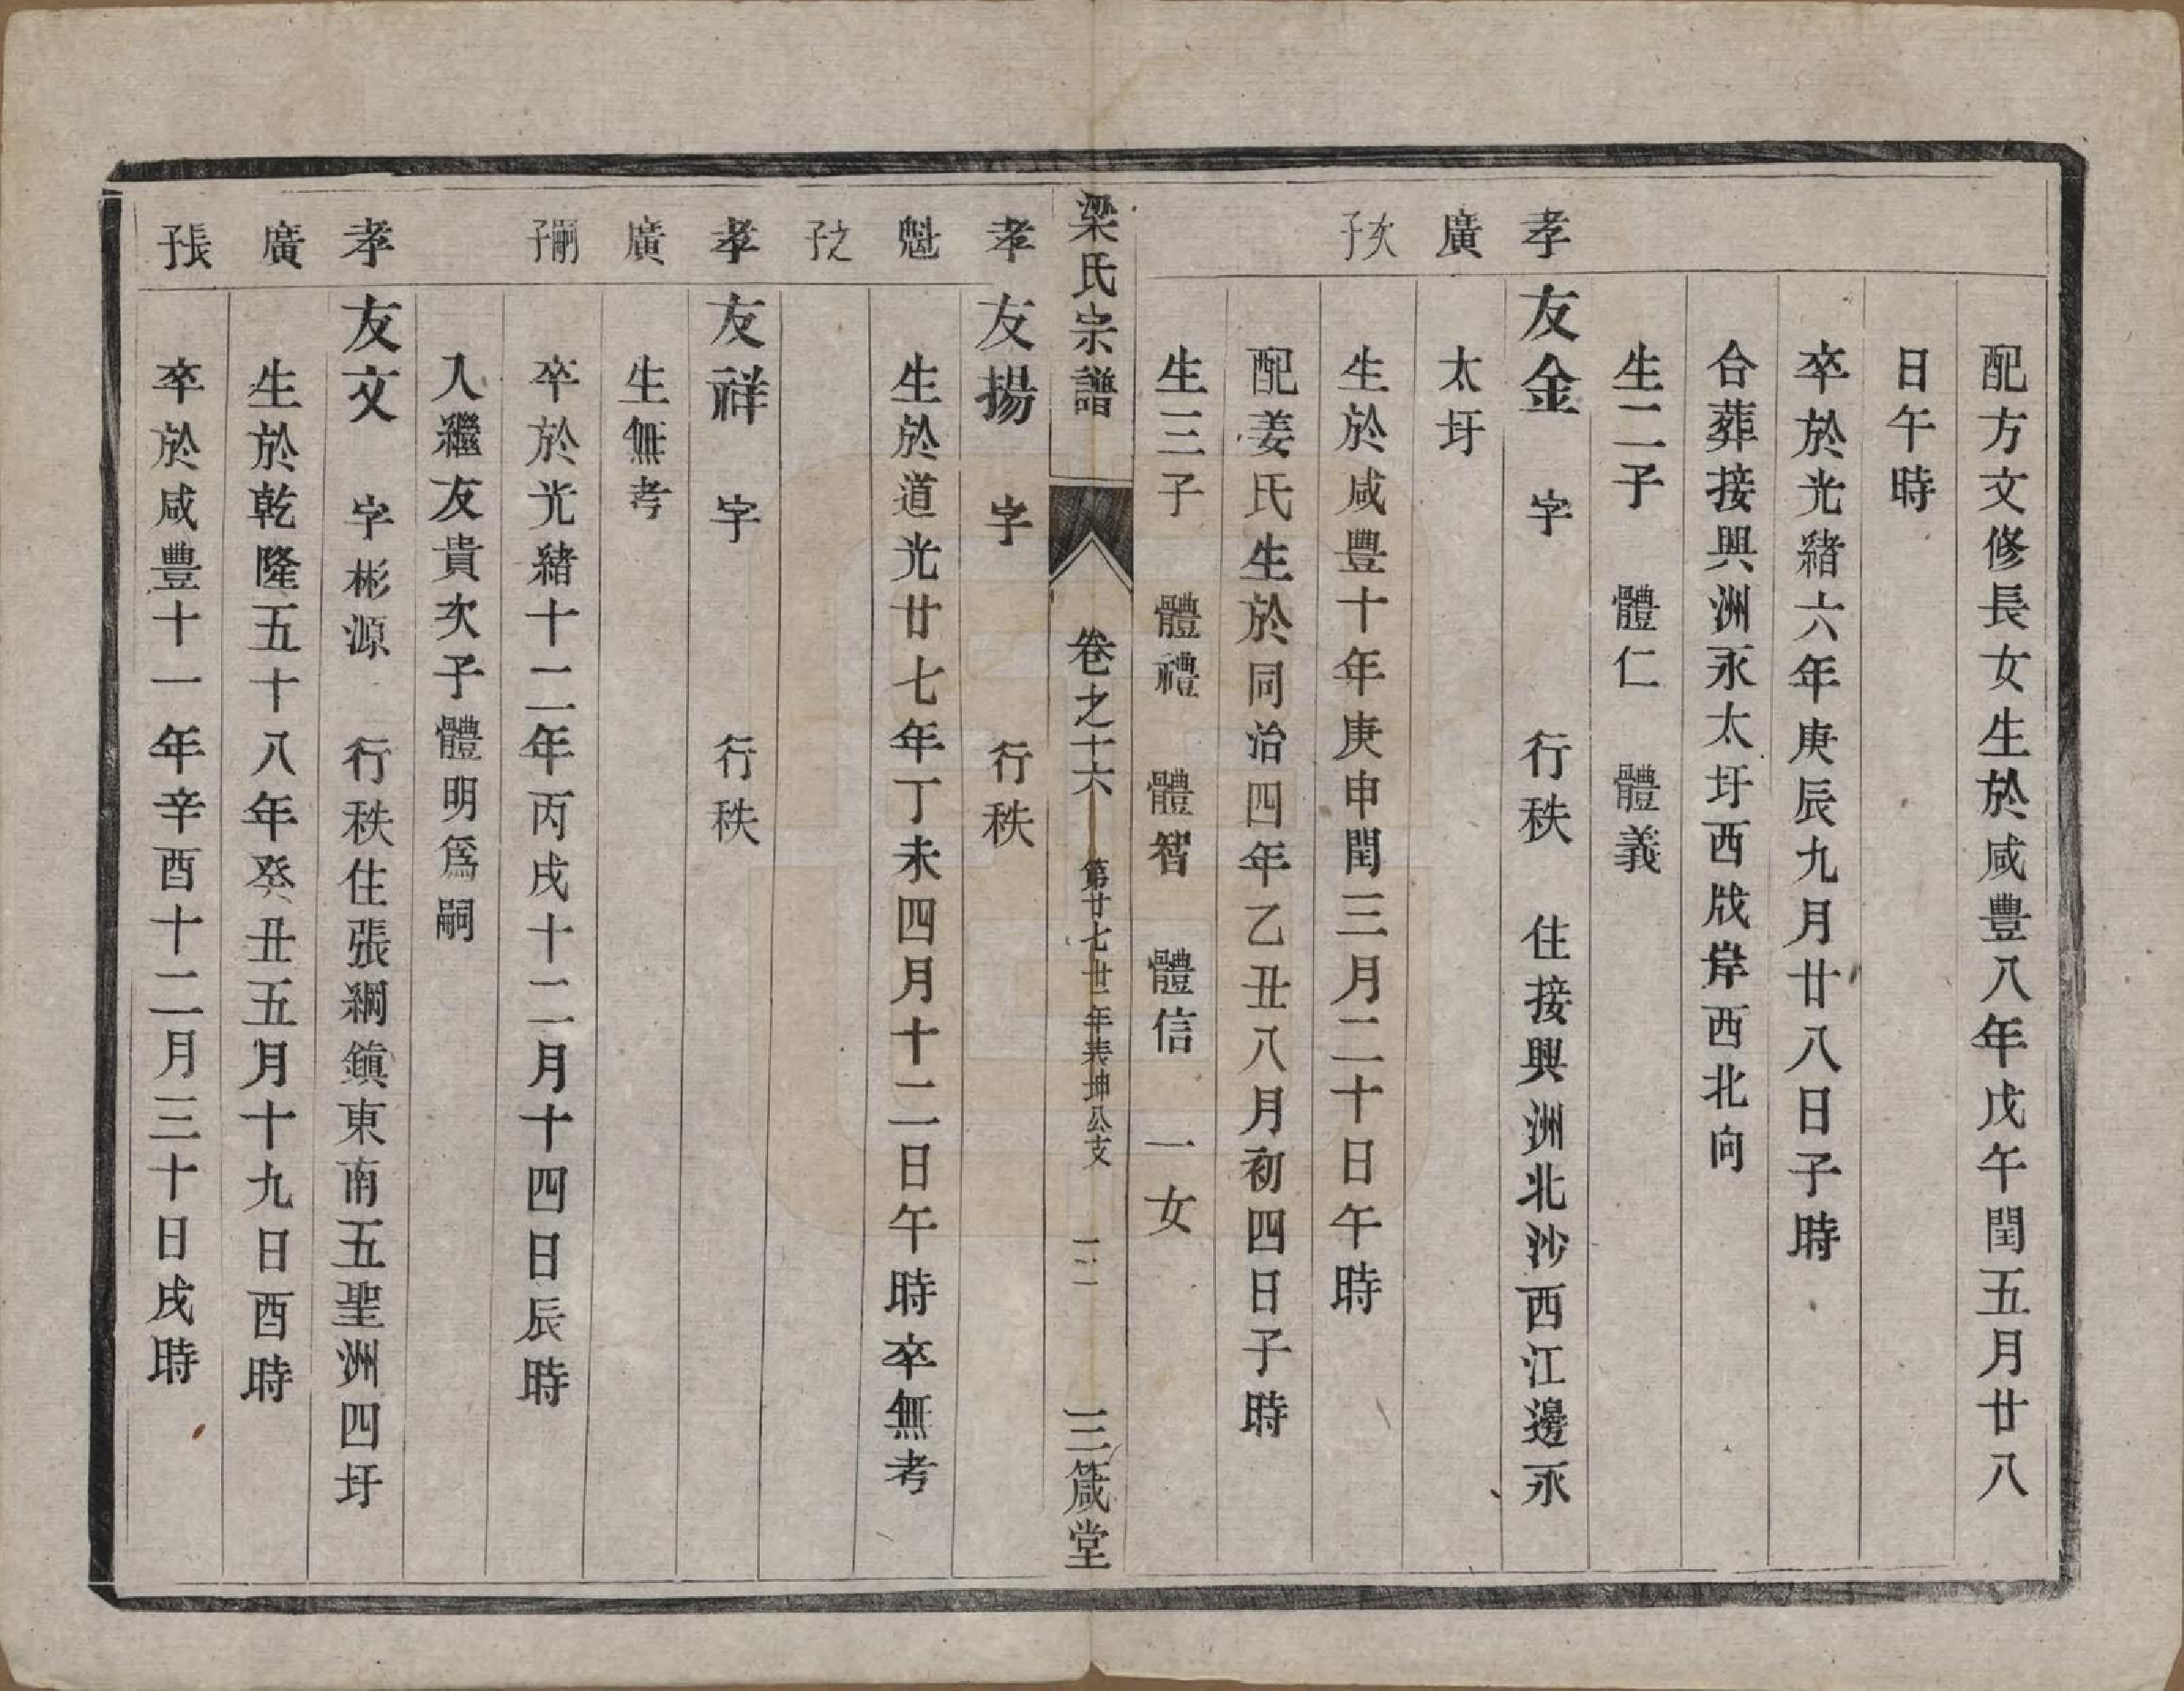 配方文修長女生於咸豐八年戊午閏五月廿八
日午時
卒於光緒六年庚辰九月廿八日子時
合葬接興洲永太圩西戗岸西北向
生二子 體仁 體義
孝 友金 字 行秩 住接興洲北沙西江邊永
廣 太圩
次子 生於咸豐十年庚申閏三月二十日午時
配姜氏生於同治四年乙丑八月初四日子時
生三子 體禮 體智 體信 一女
梁氏宗譜 卷之十六 第廿七世年表坤公支 三箴堂
孝 友揚 字 行秩
魁 生於道光廿七年丁未四月十二日午時卒無考
之子
孝 友祥 字 行秩
廣 生無考
嗣子 卒於光緒十二年丙戌十二月十四日辰時
入繼友貴次子體明爲嗣
孝 友文 字彬源 行秩住張綱鎮東南五聖洲四圩
廣 生於乾隆五十八年癸丑五月十九日酉時
長子 卒於咸豐十一年辛酉十二月三十日戌時